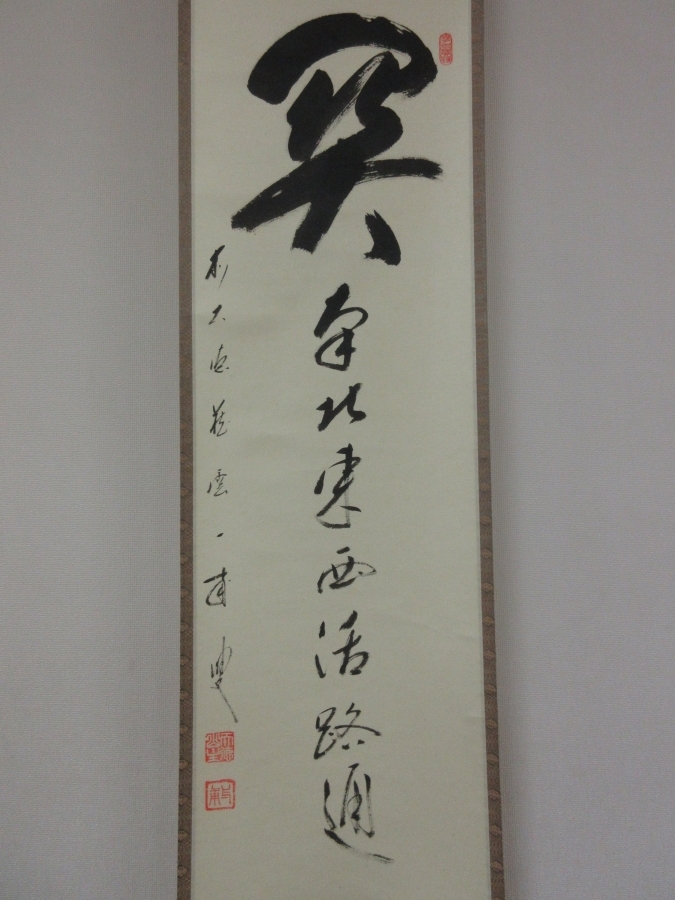 関
南北東西活路通
前大徳 雲一甫叟